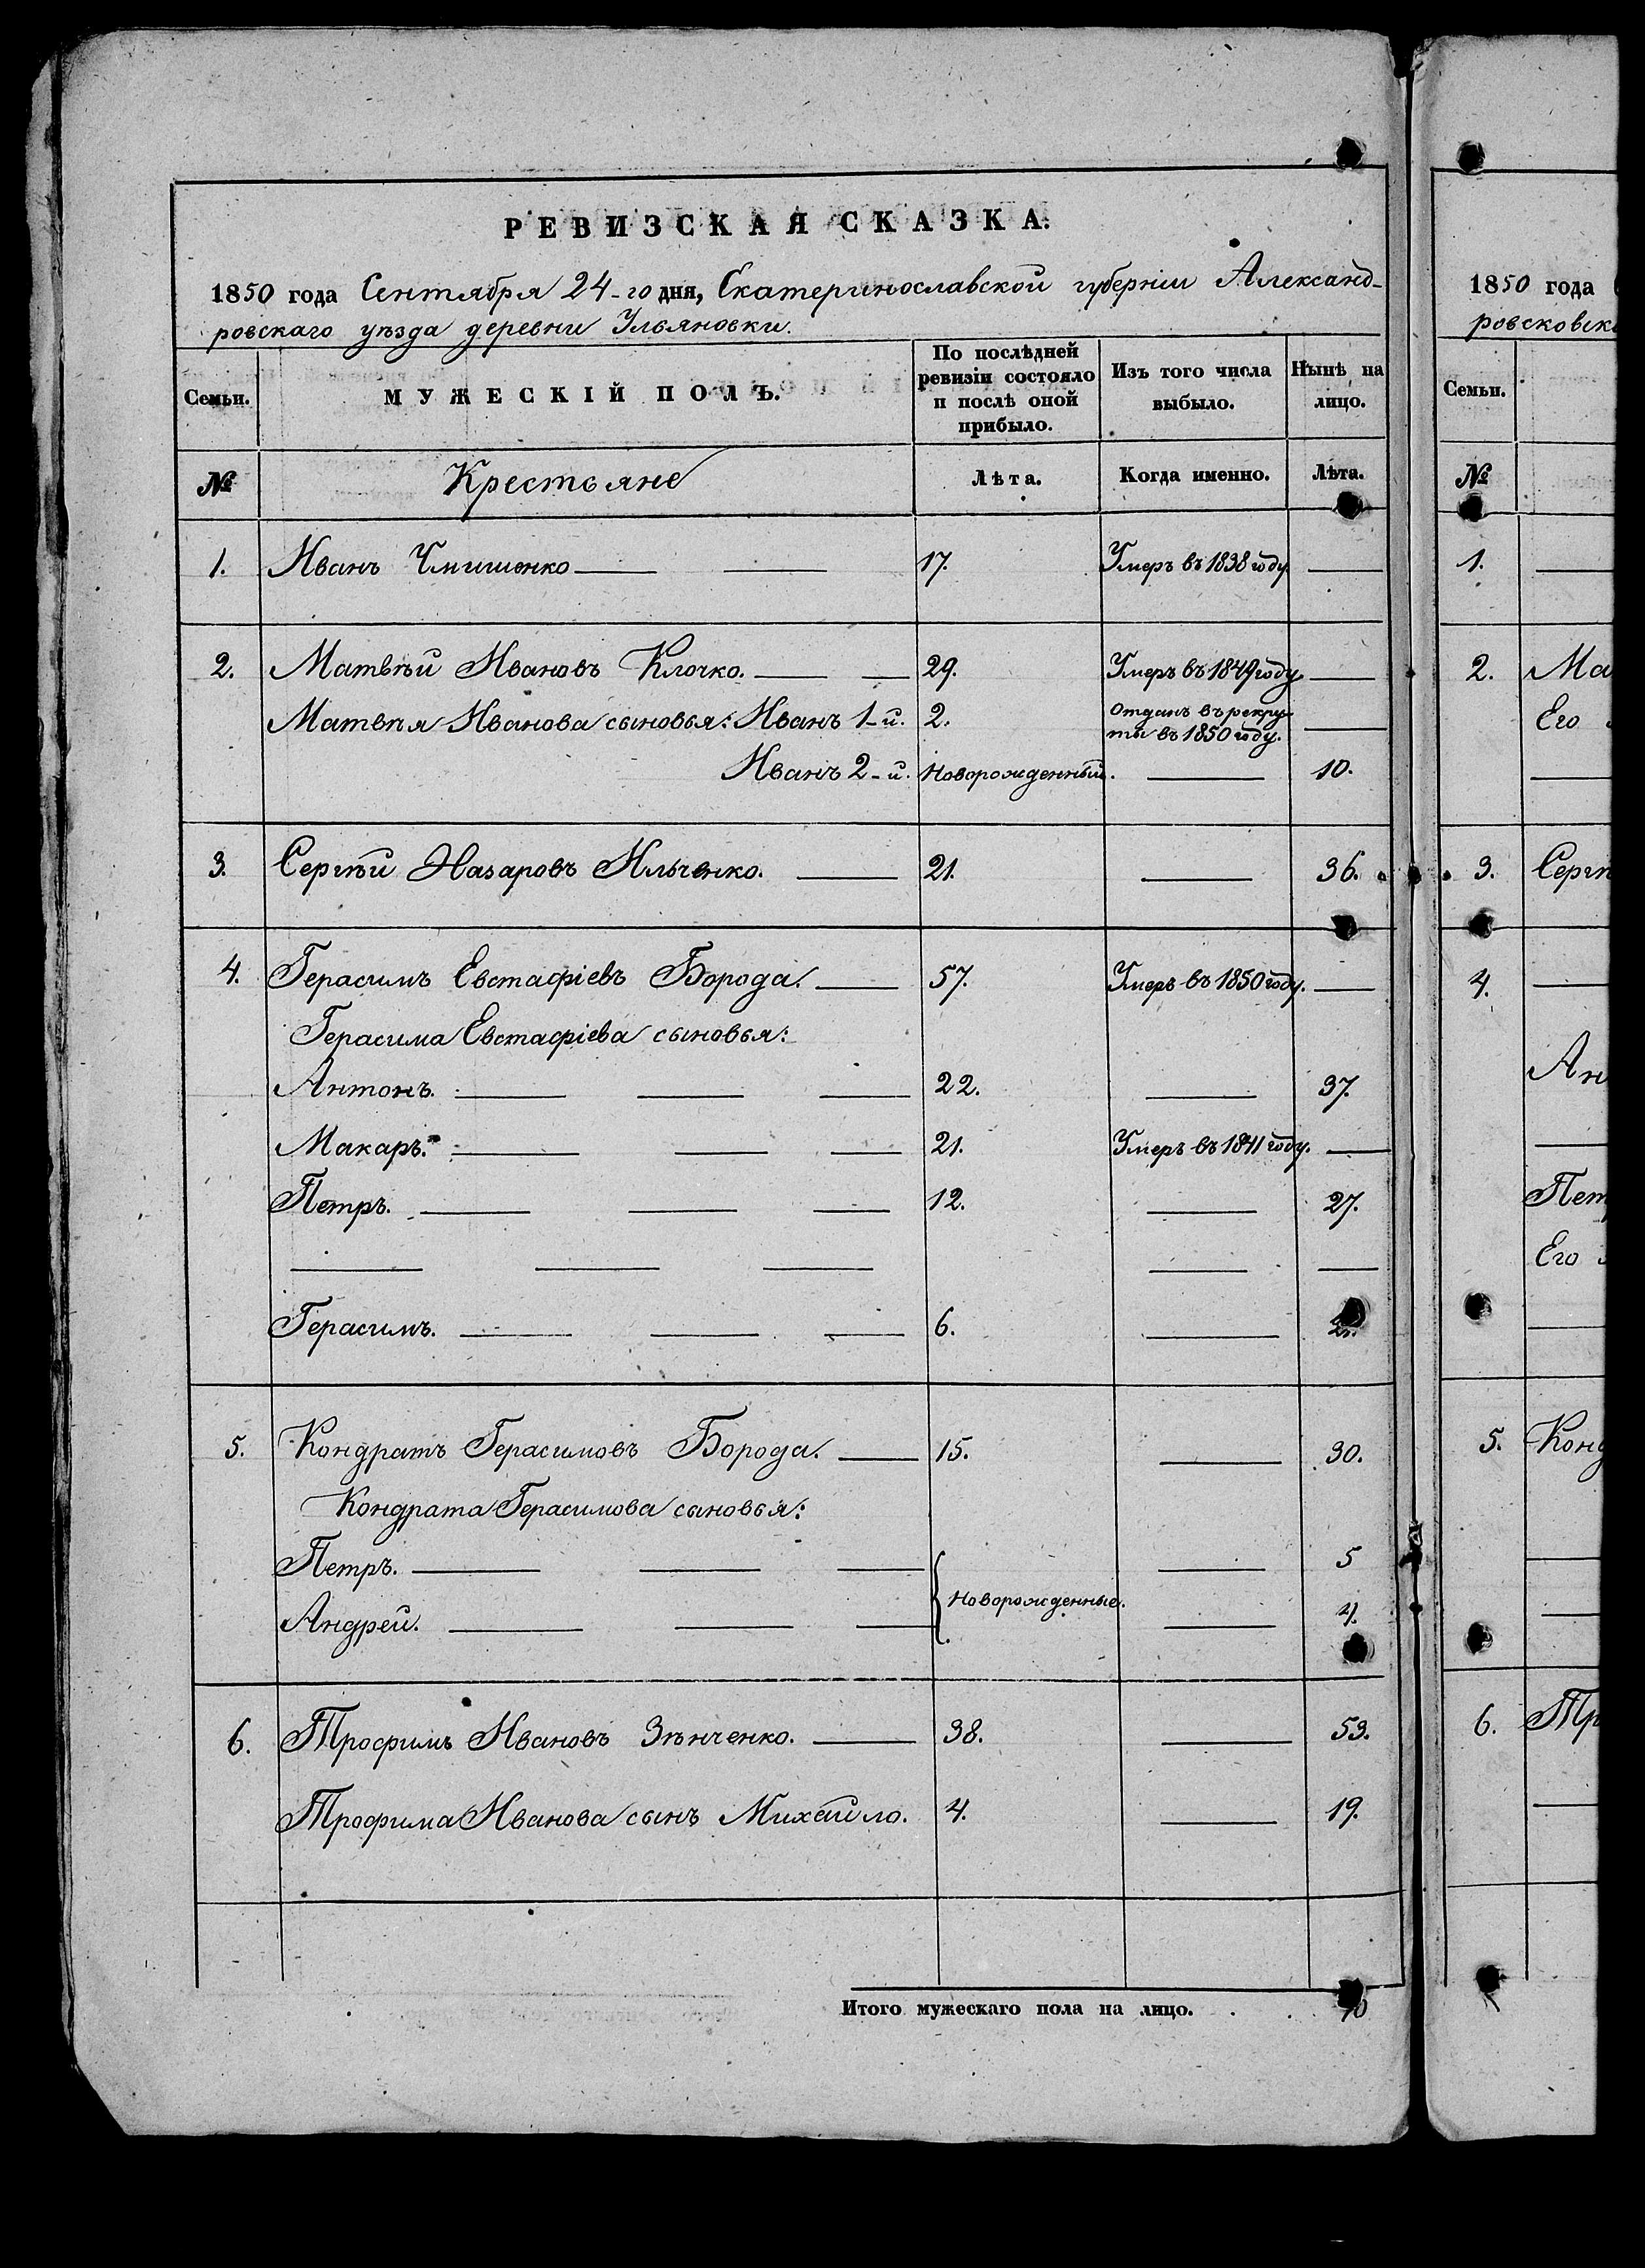 РЕВИЗСКАЯ СКАЗКА.
1850 года Сентября 24-го дня, Екатеринославской губерніи Александ-
ровскаго уѣзда деревни Ульяновки.
Семьи. МУЖЕСКІЙ ПОЛЪ. По послѣдней ревизіи состояло и послѣ оной прибыло. Изъ того числа выбыло. Нынѣ на лицо.
№ Крестьяне Лѣта. Когда именно. Лѣта.
1. Иванъ 17. Умеръ въ 1838 году
2. Матвѣй Ивановъ Клочко. 29. Умеръ въ 1849 году
Матвѣя Иванова сыновья: Иванъ 1-й. 2. Отданъ въ рекру-
ты въ 1850 году.
Иванъ 2-й. Новорожденный. 10.
3. Сергѣй Назаровъ Ильченко. 21. 36.
4. Герасимъ Евстафіевъ Борода. 57. Умеръ въ 1850 году.
Герасима Евстафіева сыновья:
Антонъ. 22. 37.
Макаръ. 21. Умеръ въ 1841 году.
Петръ. 12. 27.
Герасимъ. 6.
5. Кондратъ Герасимовъ Борода. 15. 30.
Кондрата Герасимова сыновья:
Петръ. 5
Новорожденные.
Андрей. 4.
6. Трофимъ Ивановъ Зѣнченко. 38. 53.
Трофима Иванова сынъ Михайло. 4. 19.
Итого мужескаго пола на лицо. 10
1850 года
ровсковск
Семьи.
№
1.
2. Ма
Его
3. Сергѣ
4.
Ан
Пет
Его
5. Конд
6. Тр